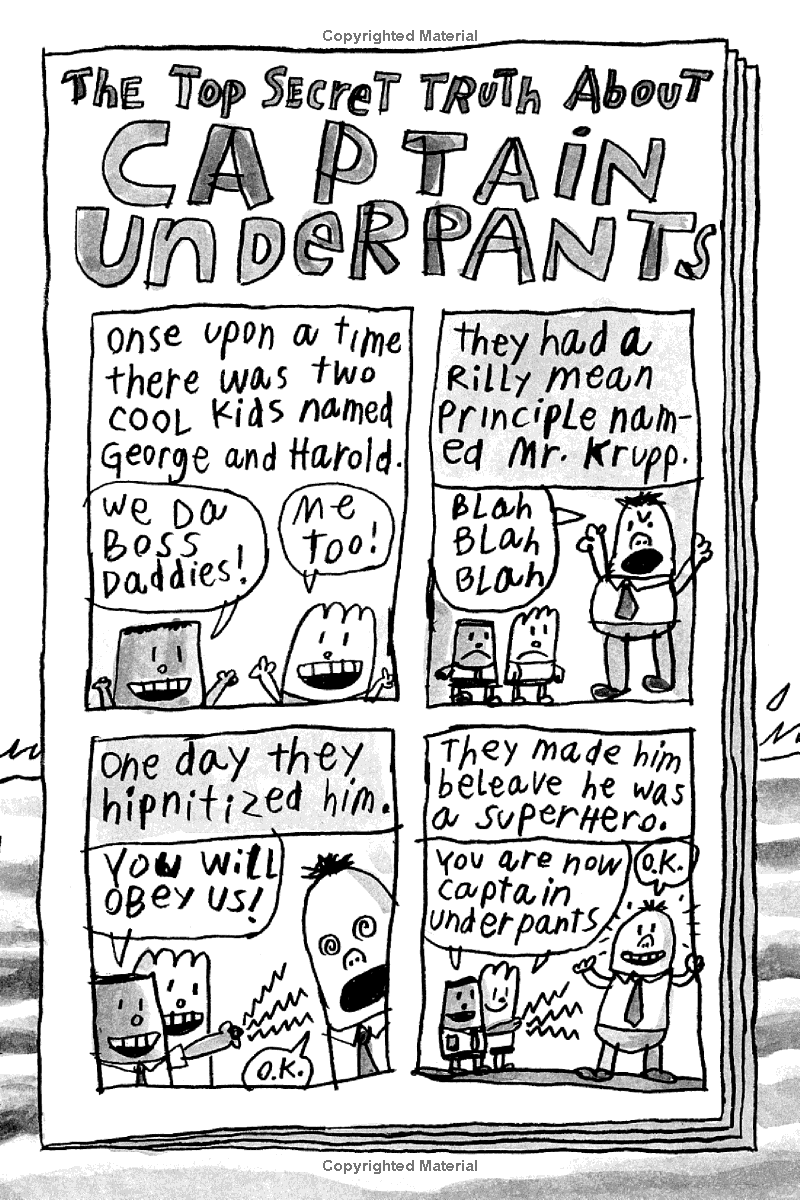 Copyrighted Material
The Top Secret Truth About
CAPTAIN
UnDeRPANTs
Onse upon a time
there was two
cool kids named
George and Harold.
we Da
Boss
Daddies!
Me
too!
they had a
Rilly mean
Principle nam-
ed Mr. Krupp.
BLah
BLah
BLah
One day they
hipnitized him.
You will
obey us!
O.K.
They made him
beleave he was
a superHero.
You are now
captain
underpants
O.K.
Copyrighted Material